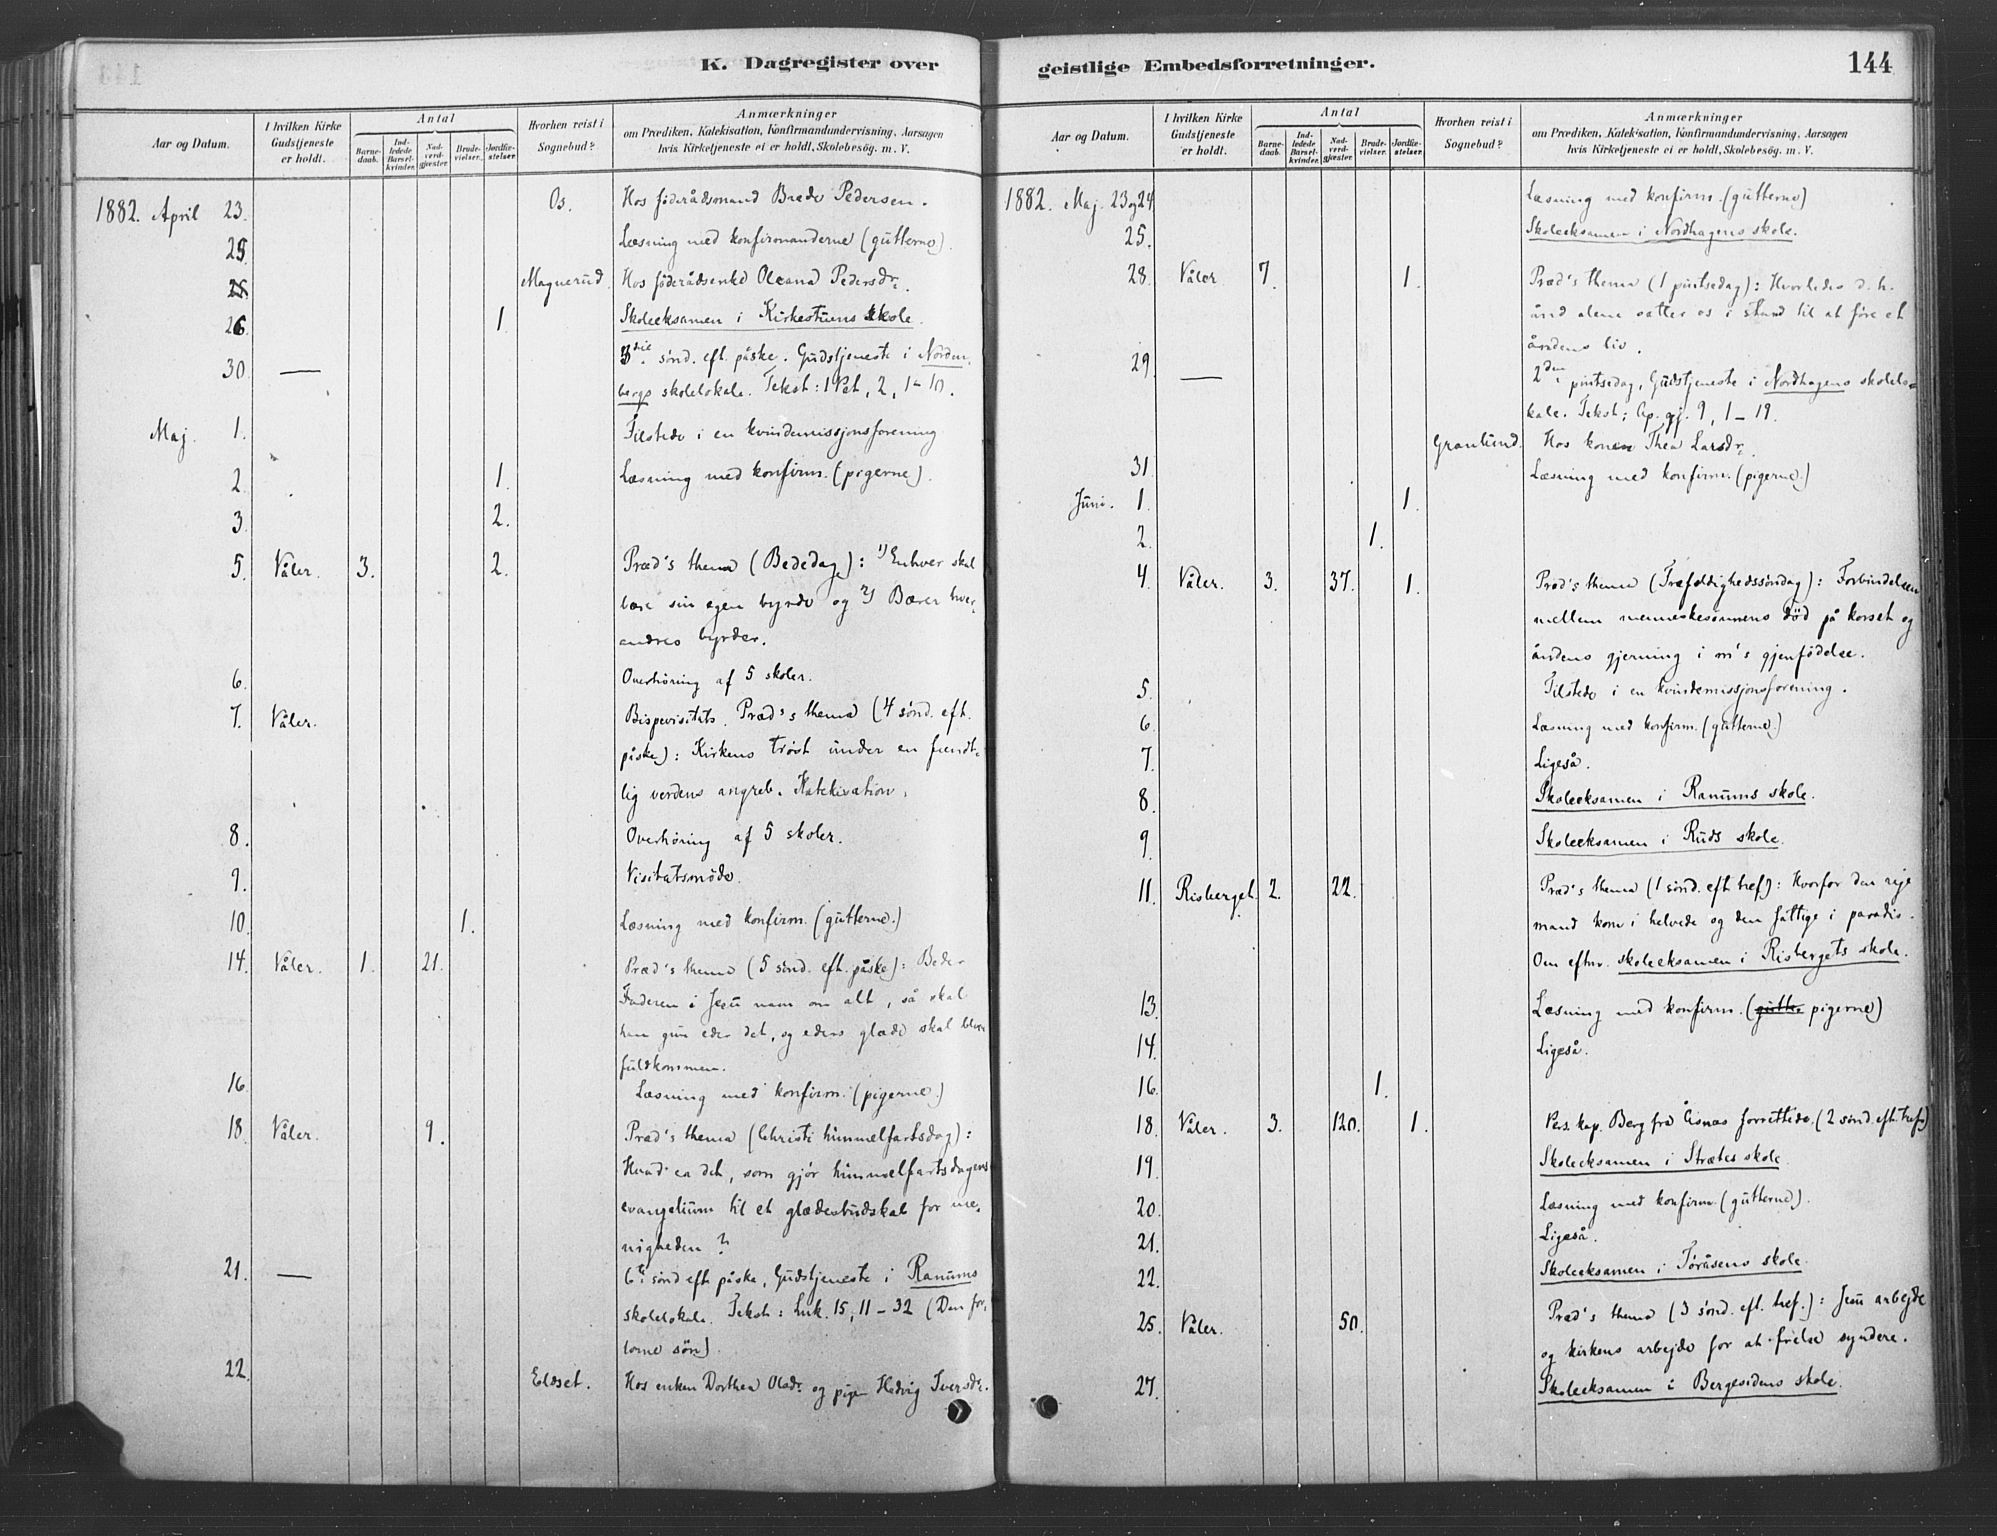 K. Dagregister over
Aar og Datum.
I hvilken Kirke Gudstjeneste er holdt.
Antal
Barnedaab.
Indledede Barselkvinder.
Nadverdgjæster.
Brudevielser.
Jordfæstelser.
Hvorhen reist i Sognebud?
Anmærkninger
om Prædiken, Katekisation, Konfirmandundervisning, Aarsagen
hvis Kirketjeneste ei er holdt, Skolebesøg. m. V.
1882. April 23. Os. Hos föderådsmand Brede Pedersen.
25. Læsning med konfirmanderne (gutterne).
Magnerud. Hos föderådsenke Oleana Pedersdr.
26. 1. Skoleeksamen i Kirkestuens skole.
30. — 3die sönd. eft. påske. Gudstjeneste i Norden-
bergs skolelokale. Tekst: 1 Pet, 2, 1-10.
Maj. 1. Tilstede i en kvindemissjonsforening
2. 1. Læsning med konfirm. (pigerne).
3. 2.
5. Våler. 3. 2. Præd's thema (Bededag): 1) Enhver skal
bære sin egen byrde og 2) Bærer hver-
andres byrder.
6. Overhöring af 5 skoler.
7. Våler. Bispevisitats. Præd's thema (4 sönd. eft.
påske): Kirkens tröst under en fiendt-
lig verdens angreb. Katekisation.
8. Overhöring af 5 skoler.
9. Visitatsmöde.
10. 1. Læsning med konfirm. (gutterne.)
14. Våler. 1. 21. Præd's thema (5 sönd. eft. påske): Beder
Faderen i Jesu navn om alt, så skal
han give eder det, og eders glæde skal blive
fuldkommen.
16. Læsning med konfirm. (pigerne.)
18. Våler. 9. Præd's thema (Christi himmelfartsdag):
Hvad er det, som gjör himmelfartsdagens
evangelium til et glædesbudskab for me-
nigheden?
21. — 6te sönd eft påske, Gudstjeneste i Ranums
skolelokale. Tekst: Luk. 15, 11-32 (Den for-
lorne sön).
22. Eldset. Hos enken Dorthea Olsdr. og pigen Hedvig Iversdr.
geistlige Embedsforretninger.
144
Aar og Datum.
I hvilken Kirke Gudstjeneste er holdt.
Antal
Barnedaab.
Indledede Barselkvinder.
Nadverdgjæster.
Brudevielser.
Jordfæstelser.
Hvorhen reist i Sognebud?
Anmærkninger
om Prædiken, Katekisation, Konfirmandundervisning, Aarsagen
hvis Kirketjeneste ei er holdt, Skolebesøg. m. V.
1882. Maj. 23 og 24. Læsning med konfirm. (gutterne)
25. Skoleeksamen i Nordhagens skole.
28. Våler 7. 1. Præd's thema (1 pintsedag): Hvorledes d. h.
ånd alene sætter os i stand til at före et
åndens liv.
29. — 2den pintsedag, Gudstjeneste i Nordhagens skolelo-
kale. Tekst: Ap. gj. 9, 1-19.
Granlund. Hos konen Thea Larsdr.
31. Læsning med konfirm. (pigerne.)
Juni. 1. 1.
2. 1.
4. Våler. 3. 37. 1. Præd's thema (Trefoldighedssöndag): Forbindelsen
mellem menneskesönnens död på korset og
åndens gjerning i m's gjenfödelse.
5. Tilstede i en kvindemissjonsforening.
6. Læsning med konfirm. (gutterne.)
7. Ligeså.
8. Skoleeksamen i Ranums skole.
9. Skoleeksamen i Ruds skole.
11. Risberget. 2. 22. Præd's thema (1 sönd. eft. tref): Hvorfor den rige
mand kom i helvede og den fattige i paradis.
Om efterm. skoleeksamen i Risbergets skole.
13. Læsning med konfirm. (gutte pigerne)
14. Ligeså.
16. 1.
18. Våler. 3. 120. 1. Pers. kap. Berg fra Åsnæs forrettede. (2 sönd. eft. tref.)
19. Skoleeksamen i Strætes skole.
20. Læsning med konfirm. (gutterne).
21. Ligeså.
22. Skoleeksamen i Töråsens skole.
25. Våler. 50. Præd's thema (3 sönd. eft. tref.): Jesu arbejde
og kirkens arbejde for at frelse syndere.
27. Skoleeksamen i Bergesidens skole.